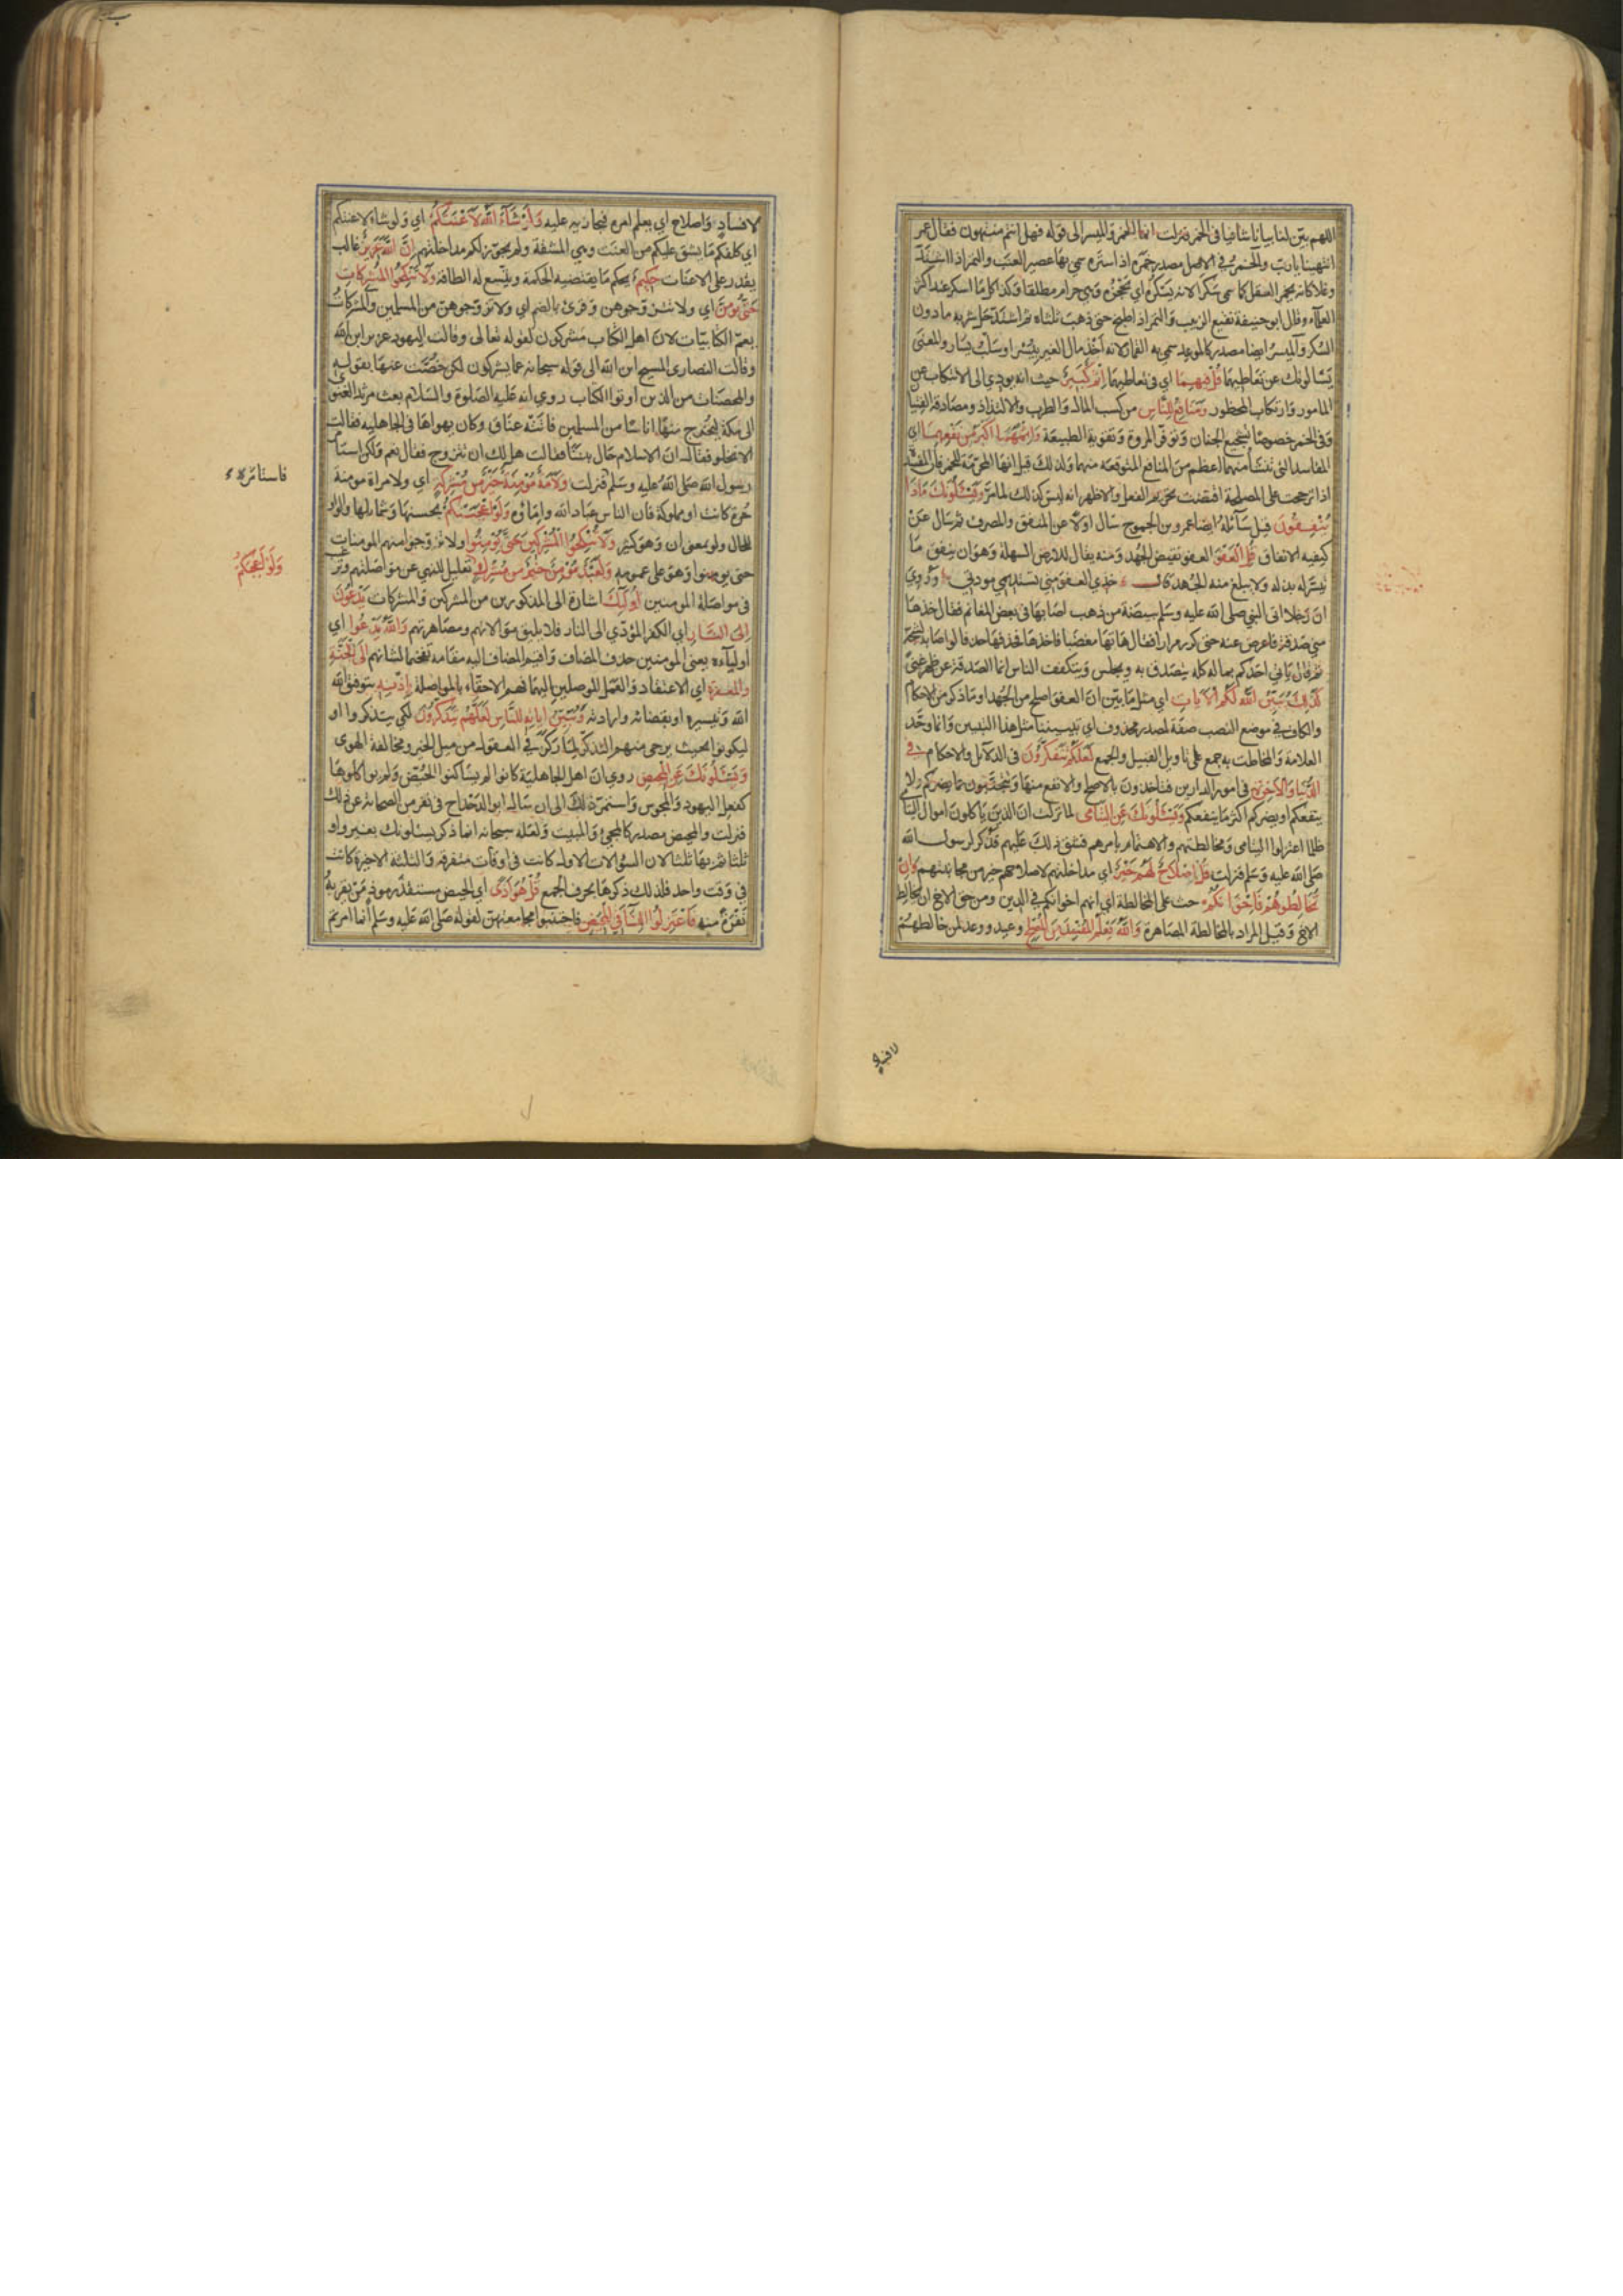 اللهم بيّن لنا بيانا شافيا في الخمر فنزلت انما الخمر والميسر الى قوله فهل انتم منتهون فقال عمر
انتهينا يا رب والخمر في الاصل مصدر خمره اذا ستره سمي بها عصير العنب والتمر اذا اشتد
وغلا كانه يخمر العقل كما سمي سكرا لانه يسكره اي يحجزه وهي حرام مطلقا وكذا كل ما اسكر عند اكثر
العلماء وقال ابو حنيفة نقيع الزبيب والتمر اذا طبخ حتى ذهب ثلثاه ثم اشتد حل شربه ما دون
السكر والميسر ايضا مصدر كالموعد سمي به القمار لانه اخذ مال الغير بيسر او سلب يساره والمعنى
يسالونك عن تعاطيهما قُلْ فِيهِمَا اي في تعاطيهما اِثْمٌ كَبِيرٌ حيث انه يودي الى الانتكاب عن
المامور وارتكاب المحظور وَمَنَافِعُ لِلنَّاسِ من كسب المال والطرب والالتذاذ ومصادقة الفتيان
وفي الخمر خصوصا تشجيع الجبان وتوفر المروة وتقوية الطبيعة وَاِثْمُهُمَا اَكْبَرُ مِنْ نَفْعِهِمَا اي
المفاسد التي تنشأ منهما اعظم من المنافع المتوقعة منهما ولذلك قيل انها المحرّمة للخمر فان المفسدة
اذا ترجحت على المصلحة اقتضت تحريم الفعل والاظهر انه ليس كذلك لما مرّ وَيَسْئَلُونَكَ مَاذَا
يُنْفِقُونَ قيل سائله ايضا عمرو بن الجموح سال اولا عن المنفق والمصرف ثم سال عن
كيفية الانفاق قُلِ الْعَفْوَ العفو نقيض الجهد ومنه يقال للارض السهلة وهو ان ينفق ما
تيسّر له بذله ولا يبلغ منه الجهد قال خذي العفو مني تستديمي مودتي وروي
ان رجلا اتى النبي صلى الله عليه وسلم ببيضة من ذهب اصابها في بعض المغانم فقال خذها
مني صدقة فاعرض عنه حتى كرر مرارا فقال هاتها مغضبا فاخذها فحذفها حذفا لو اصابه لشجه
ثم قال ياتي احدكم بماله كله يتصدق به ويجلس ويتكفف الناس انما الصدقة عن ظهر غنىً
كَذَلِكَ يُبَيِّنُ اللهُ لَكُمُ الْآيَاتِ اي مثل ما بيّن ان العفو اصلح من الجهد او ما ذكر من الاحكام
والكاف في موضع النصب صفة لمصدر محذوف اي تبيينا مثل هذا التبيين وانما وحّد
العلامة والمخاطب به جمع على تاويل القبيل والجمع لَعَلَّكُمْ تَتَفَكَّرُونَ في الدلائل والاحكام فِي
الدُّنْيَا وَالْآخِرَةِ في امور الدارين فتاخذون بالاصلح والانفع منها وتجتنبون عما يضركم ولا
ينفعكم او يضركم اكثر مما ينفعكم وَيَسْئَلُونَكَ عَنِ الْيَتَامَى لما نزلت ان الذين ياكلون اموال اليتامى
ظلما اعتزلوا اليتامى ومخالطتهم والاهتمام بامرهم فشق ذلك عليهم فذكر لرسول الله
صلى الله عليه وسلم فنزلت قُلْ اِصْلَاحٌ لَهُمْ خَيْرٌ اي مداخلتهم لاصلاحهم خير من مجانبتهم وَاِنْ
تُخَالِطُوهُمْ فَاِخْوَانُكُمْ حث على المخالطة اي انهم اخوانكم في الدين ومن حق الاخ ان يخالط
الاخ وقيل المراد بالمخالطة المصاهرة وَاللهُ يَعْلَمُ الْمُفْسِدَ مِنَ الْمُصْلِحِ وعيد ووعد لمن خالطهم
لافساد
لافسادٍ واصلاح اي يعلم امره فيجازيه عليه وَلَوْ شَاءَ اللهُ لَاَعْنَتَكُمْ اي ولو شاء لاعنتكم
اي كلفكم ما يشق عليكم من العنت وهي المشقة ولم يجوّز لكم مداخلتهم اِنَّ اللهَ عَزِيزٌ غالب
يقدر على الاعنات حَكِيمٌ يحكم ما يقتضيه الحكمة ويتّسع له الطاقة وَلَا تَنْكِحُوا الْمُشْرِكَاتِ
حَتَّى يُؤْمِنَّ اي ولا تتزوجوهن وقرئ بالضم اي ولا تزوجوهن من المسلمين والمشركات
يعم الكتابيات لان اهل الكتاب مشركون لقوله تعالى وقالت اليهود عزير ابن الله
وقالت النصارى المسيح ابن الله الى قوله سبحانه عما يشركون لكن خصّت عنها بقوله
والمحصنات من الذين اوتوا الكتاب روي انه عليه الصلوة والسلام بعث مرثد الغنوي
الى مكة ليخرج منها اناسا من المسلمين فاتته عناق وكان يهواها في الجاهلية فقالت
الا تخلو فقال ان الاسلام حال بيننا فقالت هل لك ان تتزوج فقال نعم ولكن استأمر
رسول الله صلى الله عليه وسلم فنزلت وَلَاَمَةٌ مُؤْمِنَةٌ خَيْرٌ مِنْ مُشْرِكَةٍ اي ولامراة مومنة
حرة كانت او مملوكة فان الناس عباد الله واماؤه وَلَوْ اَعْجَبَتْكُمْ بحسنها وشمائلها والواو
للحال ولو بمعنى ان وهو كثير وَلَا تُنْكِحُوا الْمُشْرِكِينَ حَتَّى يُؤْمِنُوا ولا تزوجوا منهم المومنات
حتى يومنوا وهو على عمومه وَلَعَبْدٌ مُؤْمِنٌ خَيْرٌ مِنْ مُشْرِكٍ تعليل للنهي عن مواصلتهم وترغيب
في مواصلة المومنين اُولَئِكَ اشارة الى المذكورين من المشركين والمشركات يَدْعُونَ
اِلَى النَّارِ اي الكفر المؤدّي الى النار فلا يليق موالاتهم ومصاهرتهم وَاللهُ يَدْعُوا اي
اولياءه يعني المومنين حذف المضاف واقيم المضاف اليه مقامه تفخيما لشانهم اِلَى الْجَنَّةِ
وَالْمَغْفِرَةِ اي الاعتقاد والعمل الموصلين اليهما فهم الاحقاء بالمواصلة بِاِذْنِهِ بتوفيق الله
الله وتيسيره او بقضائه وارادته وَيُبَيِّنُ آيَاتِهِ لِلنَّاسِ لَعَلَّهُمْ يَتَذَكَّرُونَ لكي يتذكروا او
ليكونوا بحيث يرجى منهم التذكر لما ركز في العقول من ميل الخير ومخالفة الهوى
وَيَسْئَلُونَكَ عَنِ الْمَحِيضِ روي ان اهل الجاهلية كانوا لم يساكنوا الحيّض ولم يواكلوها
كفعل اليهود والمجوس واستمر ذلك الى ان سال ابو الدحداح في نفر من الصحابة عن ذلك
فنزلت والمحيض مصدر كالمجئ والمبيت ولعله سبحانه انما ذكر يسئلونك بغير واو
ثلثا ثم بها ثلثا لان السؤالات الاولى كانت في اوقات متفرقة والثلثة الاخيرة كانت
في وقت واحد فلذلك ذكرها بحرف الجمع قُلْ هُوَ اَذًى اي الحيض مستقذر موذ من يقربه
نفرة منه فَاعْتَزِلُوا النِّسَاءَ فِي الْمَحِيضِ فاجتنبوا مجامعتهن لقوله صلى الله عليه وسلم انما امرتم
فاستامره
وَلَوْ اَعْجَبَكُمْ